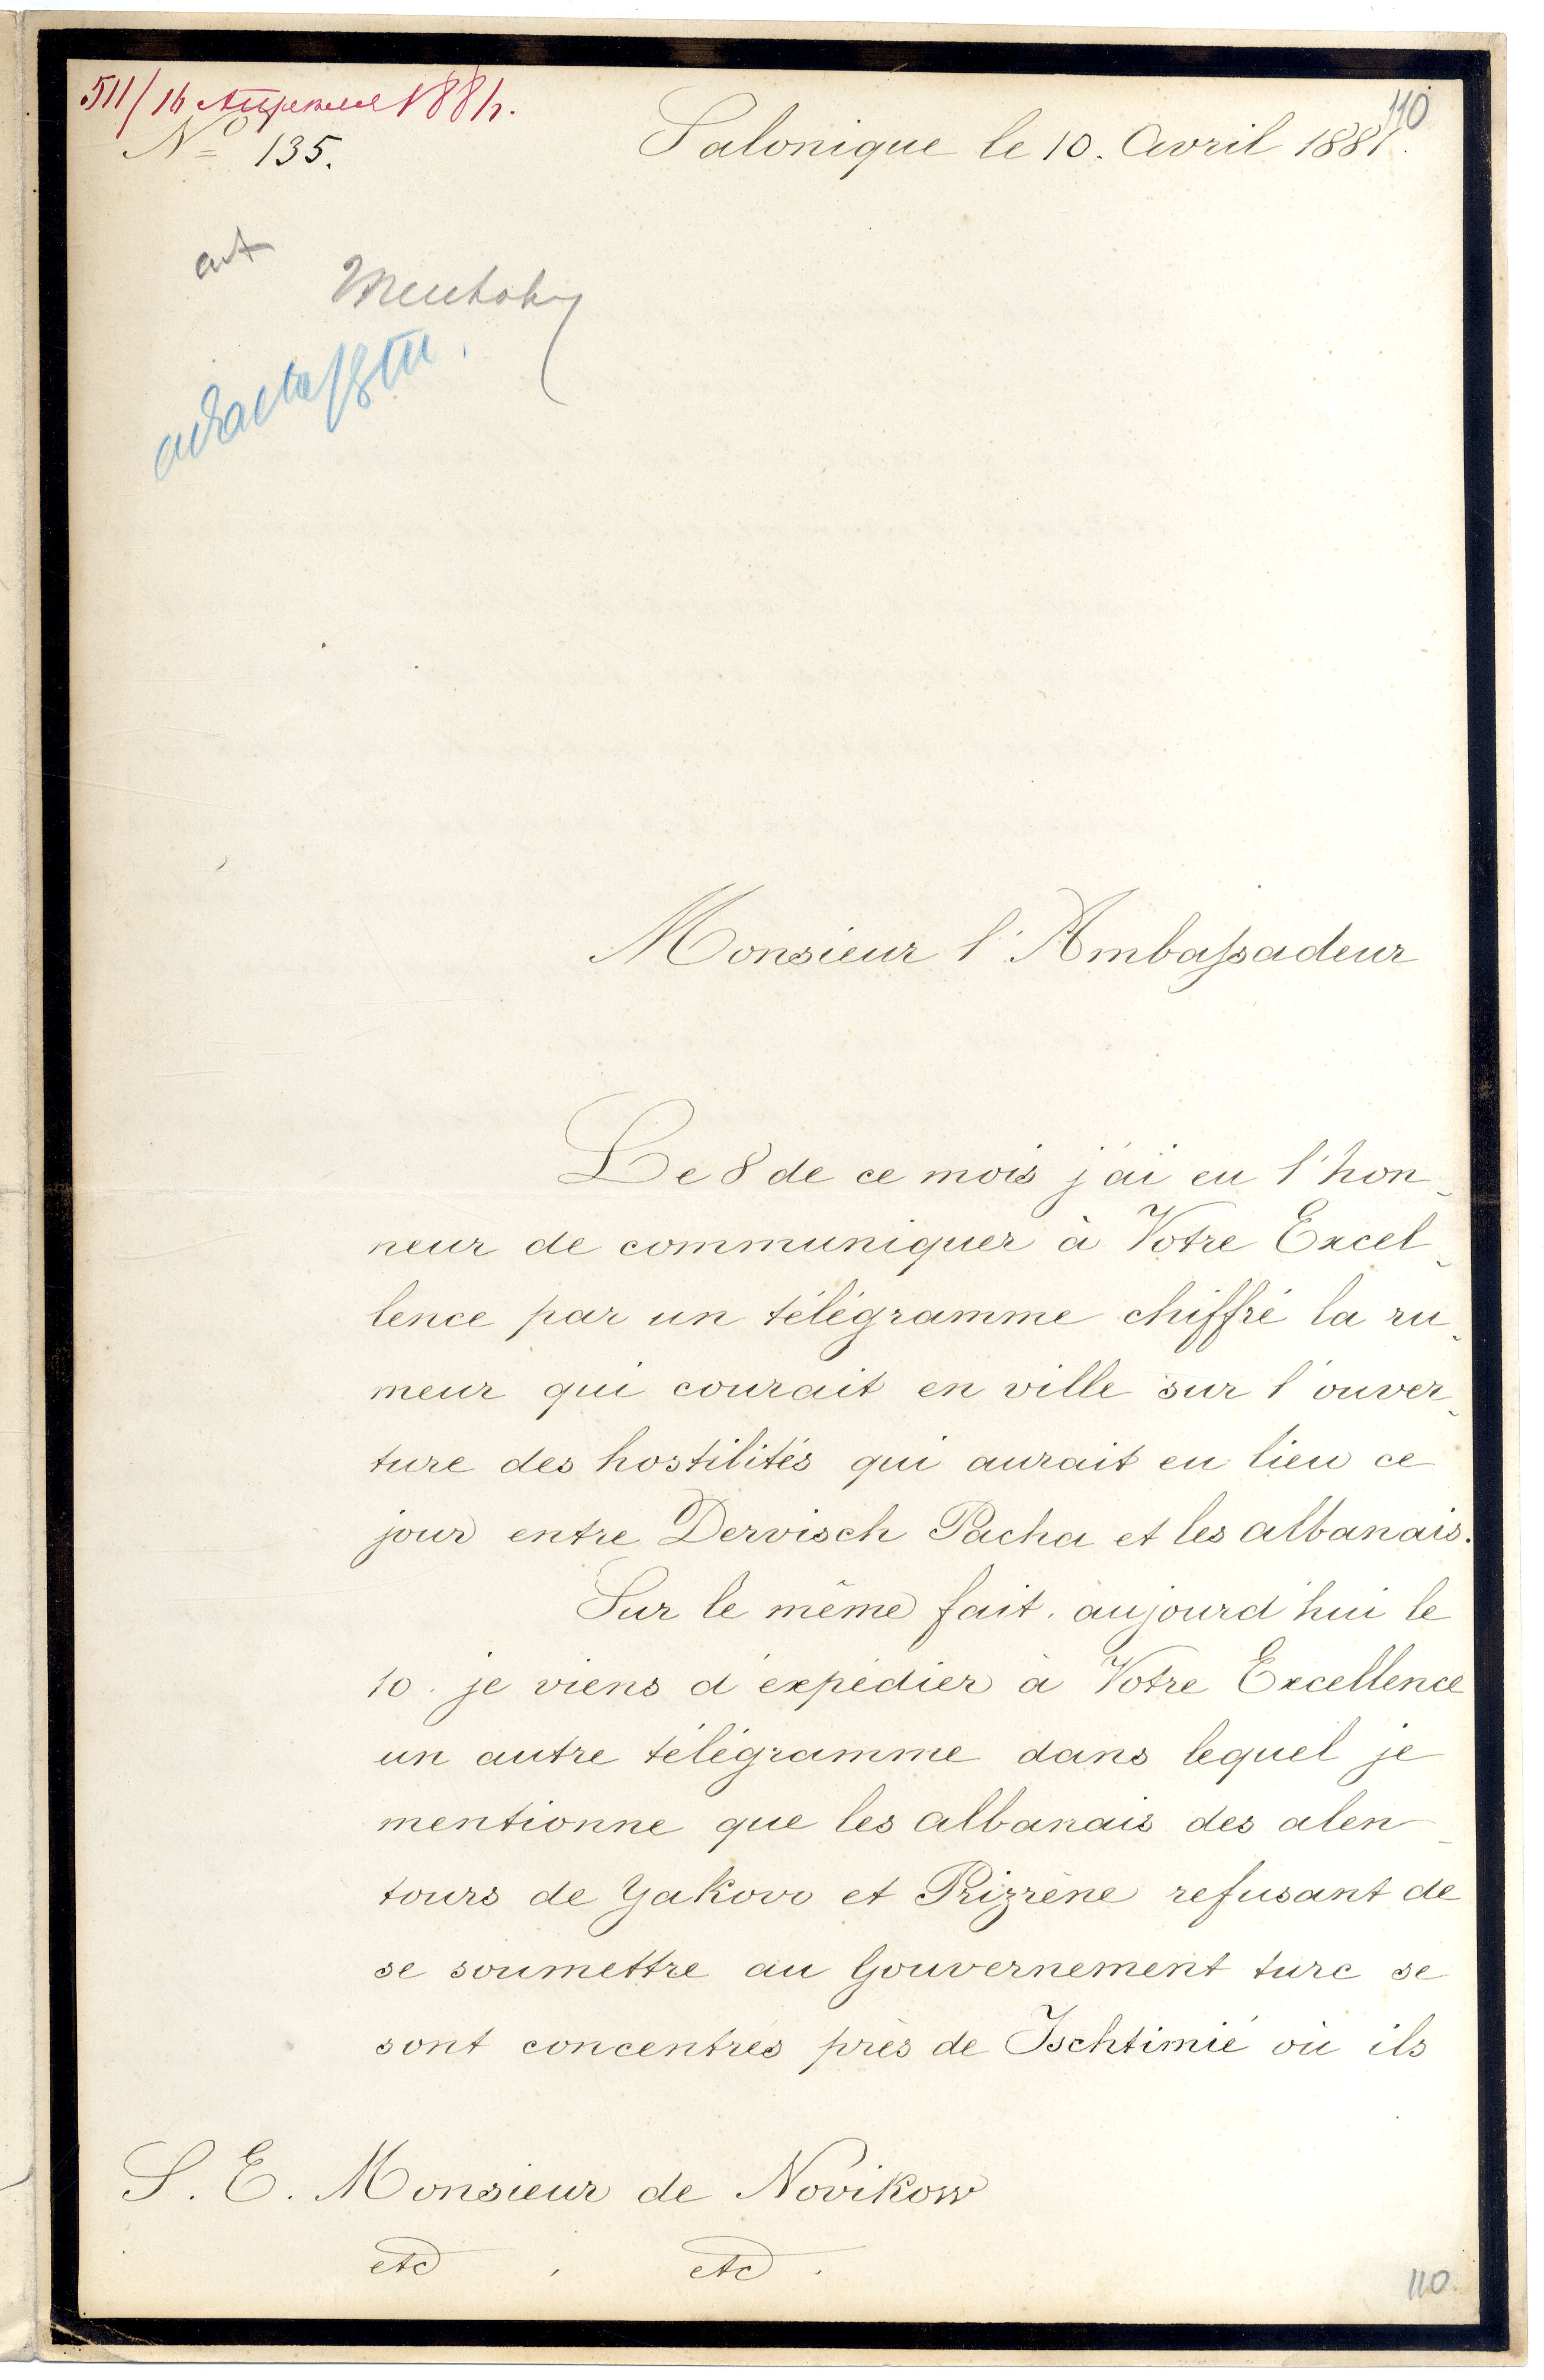 511/16 Апреля 1881 г.
110
Nº 135.
Salonique le 10. Avril 1881.
ad acta
Monsieur l'Ambassadeur
Le 8 de ce mois j'ai eu l'hon-
neur de communiquer à Votre Excel-
lence par un télégramme chiffré la ru-
meur qui courait en ville sur l'ouver-
ture des hostilités qui aurait eu lieu ce
jour entre Dervisch Pacha et les albanais.
Sur le même fait. aujourd'hui le
10. je viens d'expédier à Votre Excellence
un autre télégramme dans lequel je
mentionne que les albanais des alen-
tours de Yakovo et Prizrène refusant de
se soumettre au Gouvernement turc se
sont concentrés près de Ischtimié où ils
S. E. Monsieur de Novikow
etc . etc .
110